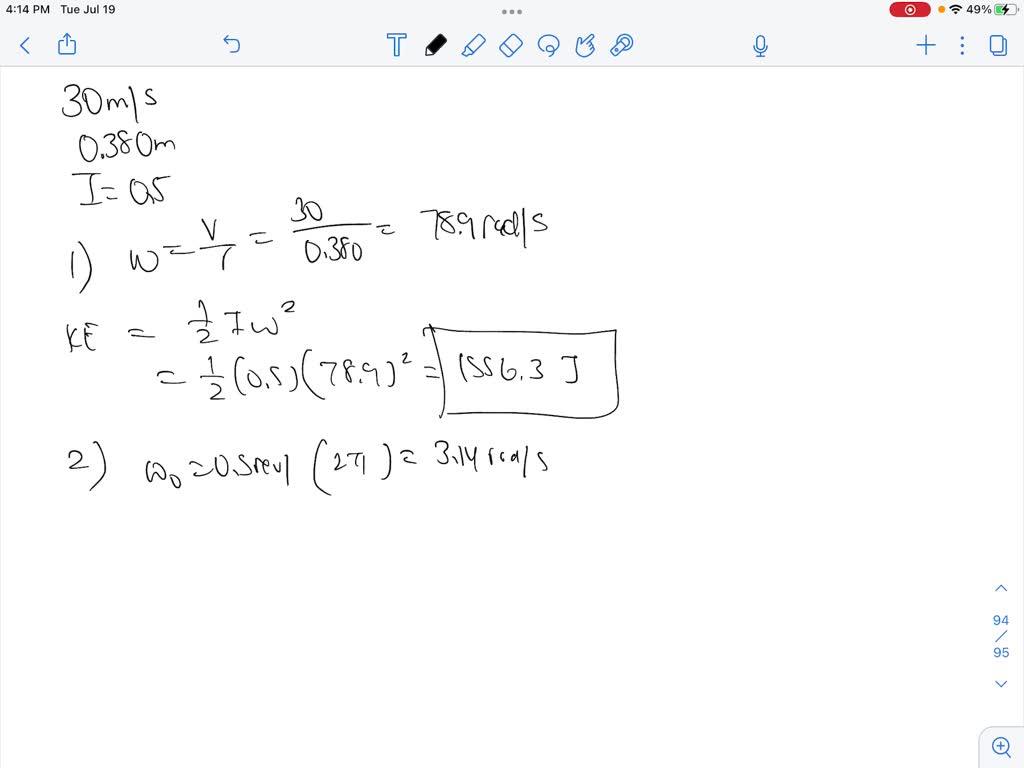 4:14 PM Tue Jul 19
49%
30m/s
0.380m
I = 0.5
1) ω = V/r = 30/0.380 = 78.9 rad/s
KE = 1/2 I ω²
= 1/2 (0.5)(78.9)² = 1556.3 J
2) ω₀ = 0.5rev/ (2π) = 3.14 rad/s
94
/
95